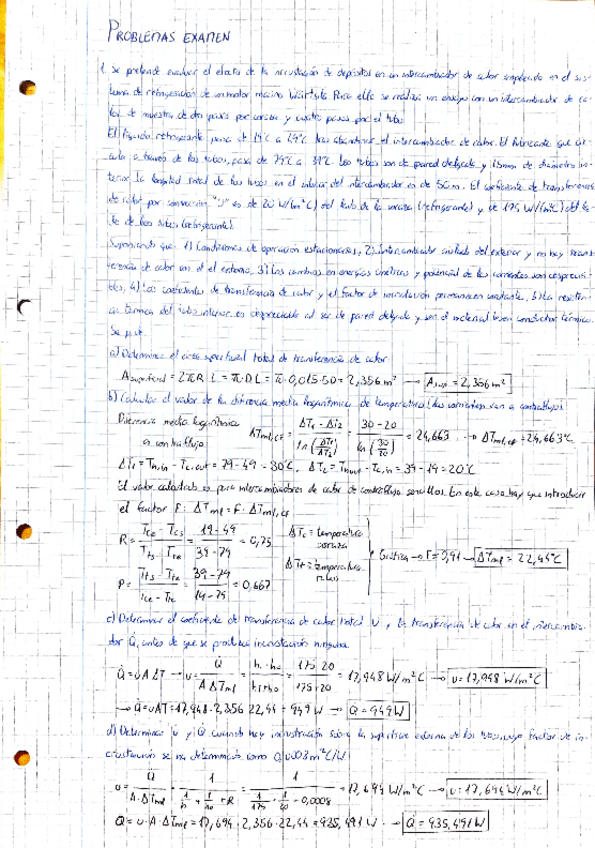 PROBLEMAS EXAMEN
1. Se pretende evaluar el efecto de la incrustación de depósitos en un intercambiador de calor empleado en el sis-
tema de refrigeración de un motor marino Wärtsila. Para ello se realiza un ensayo con un intercambiador de ca-
lor de muestra de dos pasos por coraza y cuatro pasos por el tubo.
El líquido refrigerante pasa de 19°C a 49°C tras abandonar el intercambiador de calor. El lubricante que cir-
cula a través de los tubos, pasa de 79°C a 39°C. Los tubos son de pared delgada y 15mm de diámetro in-
terior. La longitud total de los tubos en el interior del intercambiador es de 50m. El coeficiente de transferencia
de calor por convección es de 20 W/(m²C) del lado de la coraza (refrigerante) y de 175 W/(m²C) del la-
do de los tubos (refrigerante).
Suponiendo que: 1) Condiciones de operación estacionarias, 2) Intercambiador aislado del exterior y no hay trans-
ferencia de calor con el entorno, 3) Los cambios en energías cinéticas y potencial de las corrientes son desprecia-
bles, 4) Los coeficientes de transferencia de calor y el factor de incrustación permanecen constante, 5) La resisten-
cia térmica del tubo interior es despreciable al ser de pared delgada y ser el material buen conductor térmico.
Se pide:
a) Determinar el área superficial total de transferencia de calor
A superficial = 2πR L = π·D L = π·0,015·50 = 2,356 m² → A sup = 2,356 m²
b) Calcular el valor de la diferencia media logarítmica de temperatura (las corrientes van a contraflujo)
Diferencia media logarítmica
a contraflujo ΔTml,CF = ΔT1 - ΔT2 / ln(ΔT1/ΔT2) = 30-20 / ln(30/20) = 24,663 → ΔTml,cf = 24,663°C
ΔT1 = Th,in - Tc,out = 79 - 49 = 30°C, ΔT2 = Th,out - Tc,in = 39 - 19 = 20°C
El valor calculado es para intercambiadores de calor de contraflujo sencillos. En este caso hay que introducir
el factor F: ΔTml = F·ΔTml,CF
R = Tce - Tcs / Tts - Tte = 19-49 / 39-79 = 0,75
ΔTc = temperatura coraza
ΔTt = temperatura tubos
Gráfica → F = 0,91 → ΔTml = 22,44°C
P = Tts - Tte / Tce - Tte = 39-79 / 19-79 = 0,667
c) Determinar el coeficiente de transferencia de calor total U, y la transferencia de calor en el intercambia-
dor Q̇, antes de que se produzca incrustación ninguna.
Q̇ = U A ΔT → U = Q̇ / A ΔTml = hi·ho / hi+ho = 175·20 / 175+20 = 17,948 W/m²C → U = 17,948 W/m²C
→ Q̇ = UAT = 17,948·2,356·22,44 = 949 W → Q̇ = 949 W
d) Determinar U y Q̇ cuando hay incrustación sobre la superficie externa de los tubos, cuyo factor de in-
crustación se ha determinado como 0,0008 m²C/W
U = Q̇ / A·ΔTml = 1 / 1/hi + 1/ho + R = 1 / 1/175 + 1/20 + 0,0008 = 17,694 W/m²C → U = 17,694 W/m²C
Q̇ = U·A·ΔTml = 17,694·2,356·22,44 = 935,491 W → Q̇ = 935,491 W